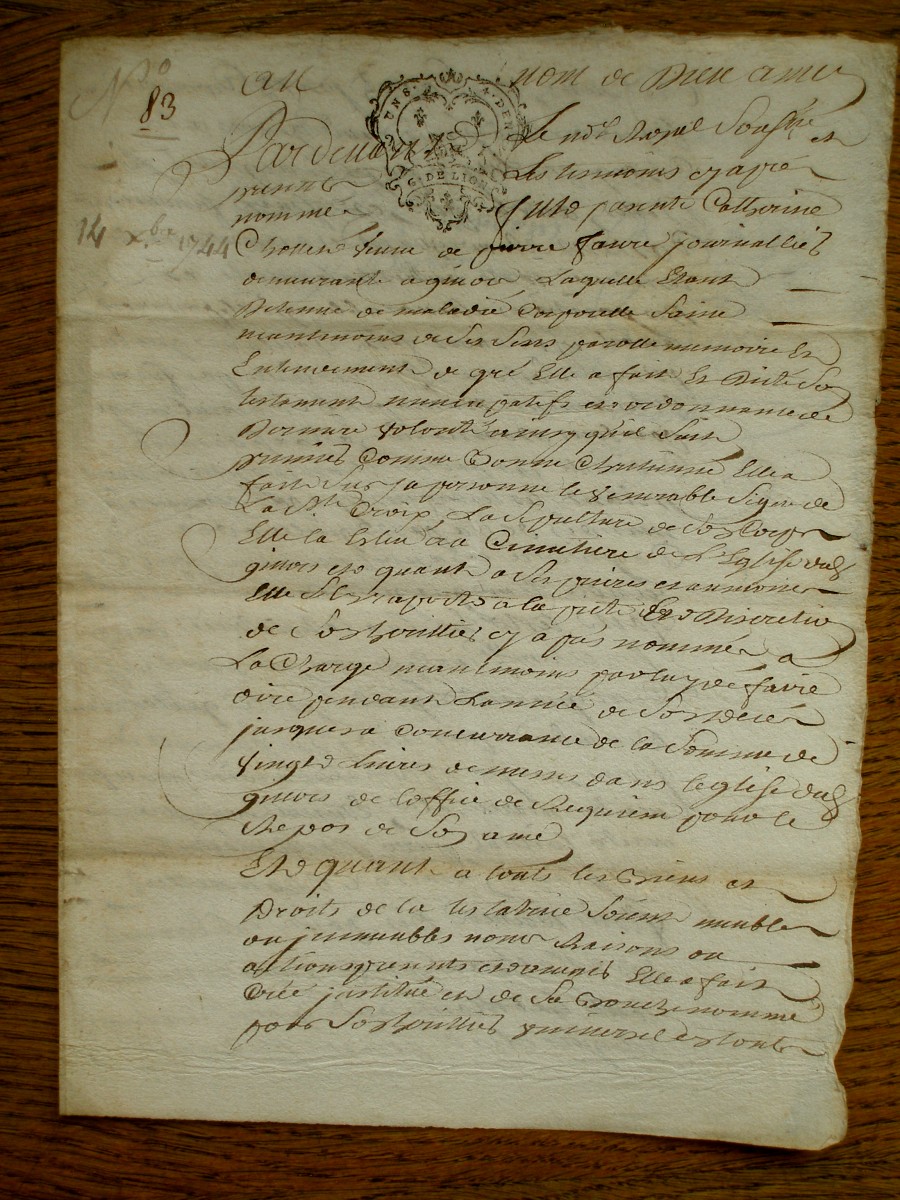 N.o
83
14 xbre 1744
au nom de Dieu amen
UNS. 4. DEN
G. DE LION
Pardevant Le nore Royal Soussné et
Les temoins cy apres
nommes fut presente Catherine
veuve de pierre faure journallier
demeurant a givors, Laquelle Etant
Detenue de maladie Corporelle Saine
neantmoins de ses sens parolle memoire Et
Entendement de gré Elle a fait Et Dicté Son
testament nuncupatif et ordonnance de
Derniere volonté ainsy quil suit
premier Comme bonne Chretienne Elle a
fait sur sa personne le venerable Signe de
La Ste Croix, La Sepulture de Son Corps
Elle la Eslu au Cimitiere de L'Eglise dud
givors et quant a ses prieres et aumones
Elle S'En raporte a la pieté Et Discretion
de Son heritier cy apres nommé a
La Charge neantmoins par luy de faire
dire pendant L'année de Son decés
jusques a Concurrance de la Somme de
vingt Livres de messes dans leglise dud
givors de loffice de Requiem pour le
Repos de Son ame
Et quant a touts les biens et
Droits de la testatrice Soient meubles
ou jmmeubles noms Raisons ou
actions presents et avenir Elle a fait
Créé jnstitué et de Sa bouche nommé
pour Son heritier universel et tout